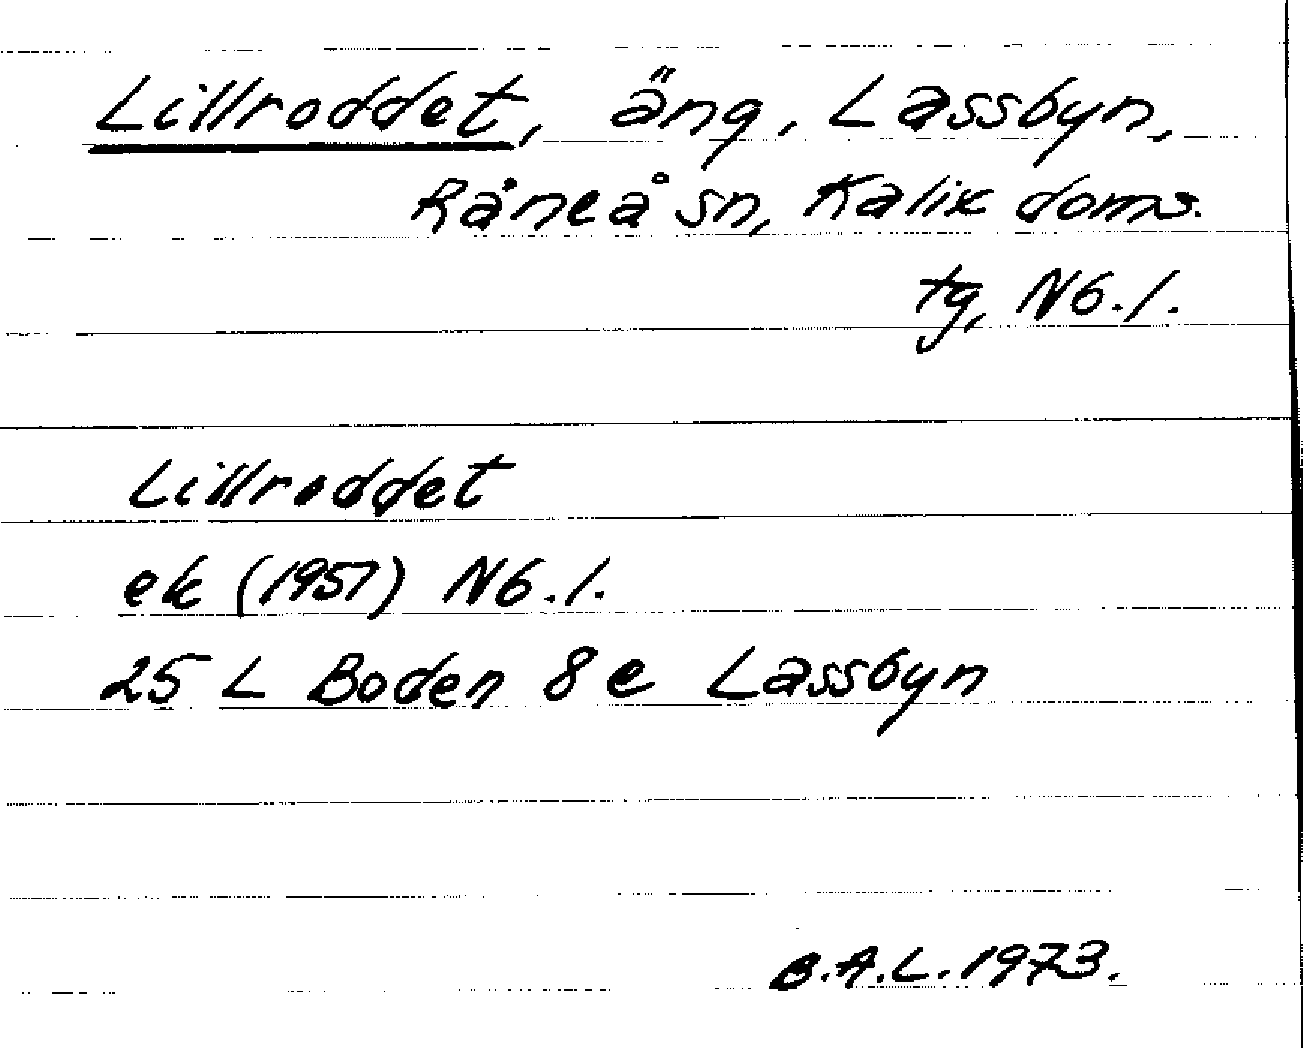 Lillroddet, äng, Lassbyn,
Råneå sn, Kalix doms.
tg, Nb.l.
Lillroddet
ek (1951) Nb.l.
25 L Boden 8 e Lassbyn
B.A.L. 1973.